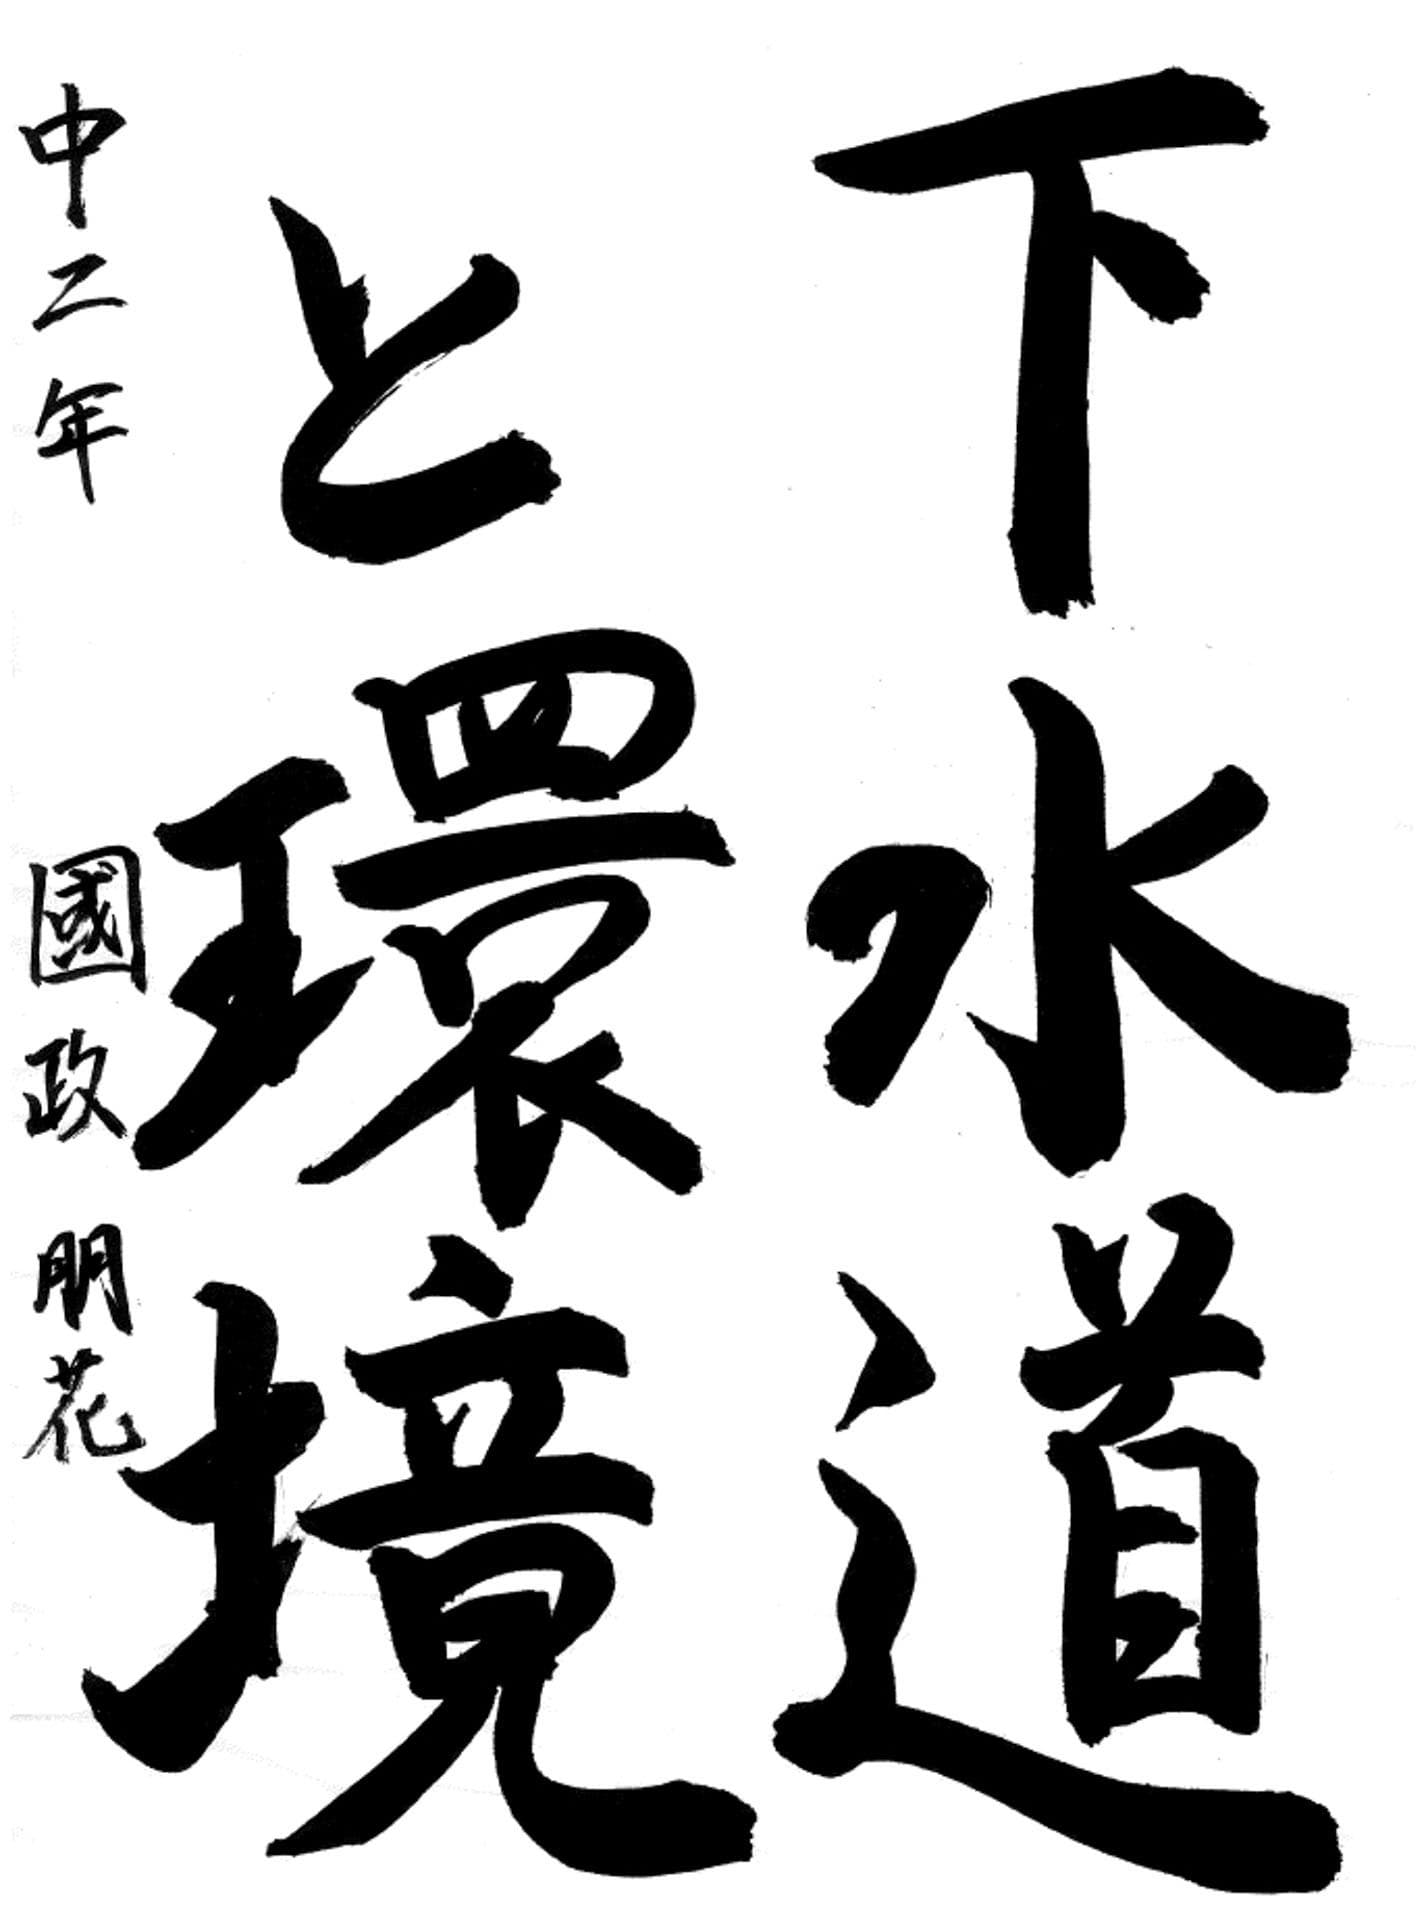 下水道
と環境
中二年 國政朋花